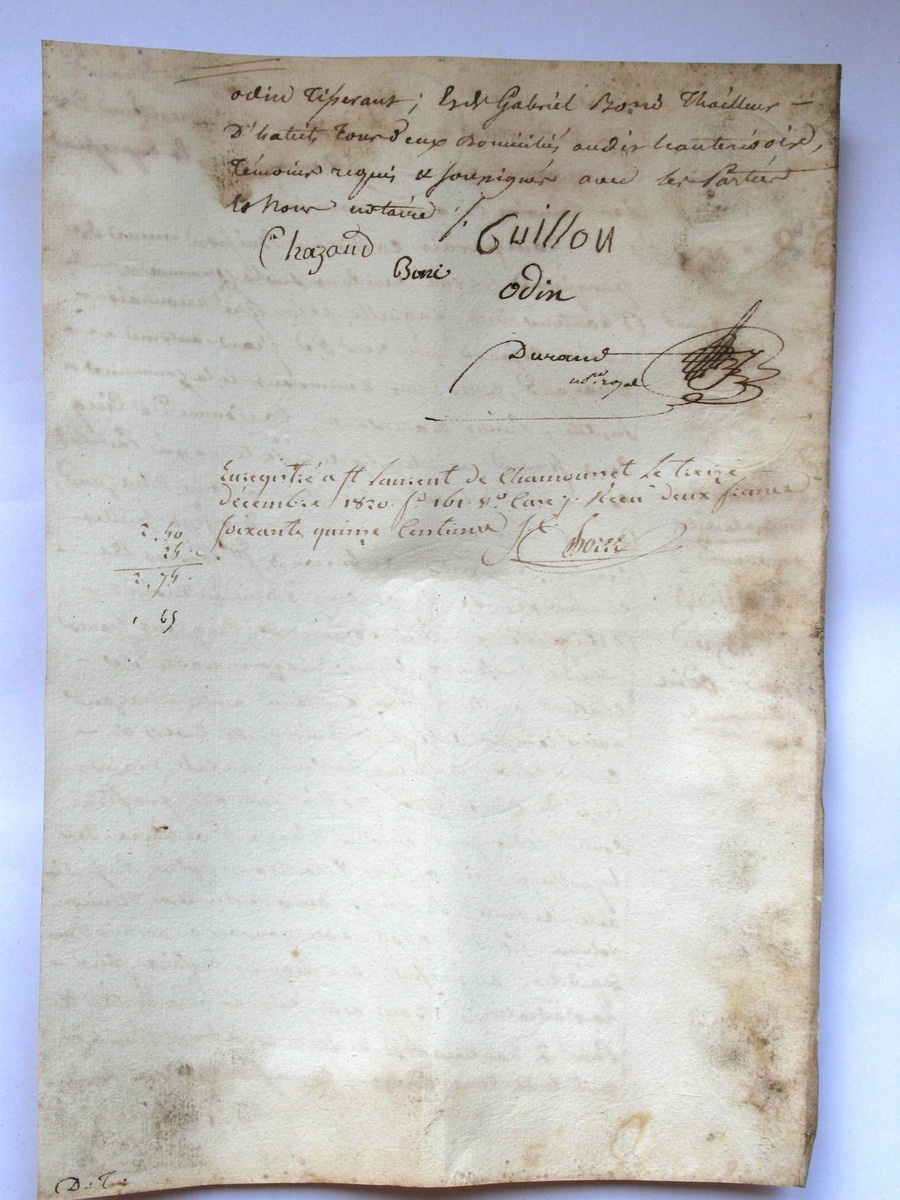 odin Tisserant; Et Sr Gabriel Boni Thailleur
D'habits, Tous deux Domiciliés audit hauterivoire,
Témoins requis & soussignés avec les Parties
Et Nous notaire ./.
Chazaud Guillon
Boni odin
Durand
nore royal
Enregistré a st laurent de Chamousset Le treize
décembre 1820. fo 161. vo Case j. Recu deux francs
soixante quinze Centimes
2. 50
25
2. 75
1 65
D. T.